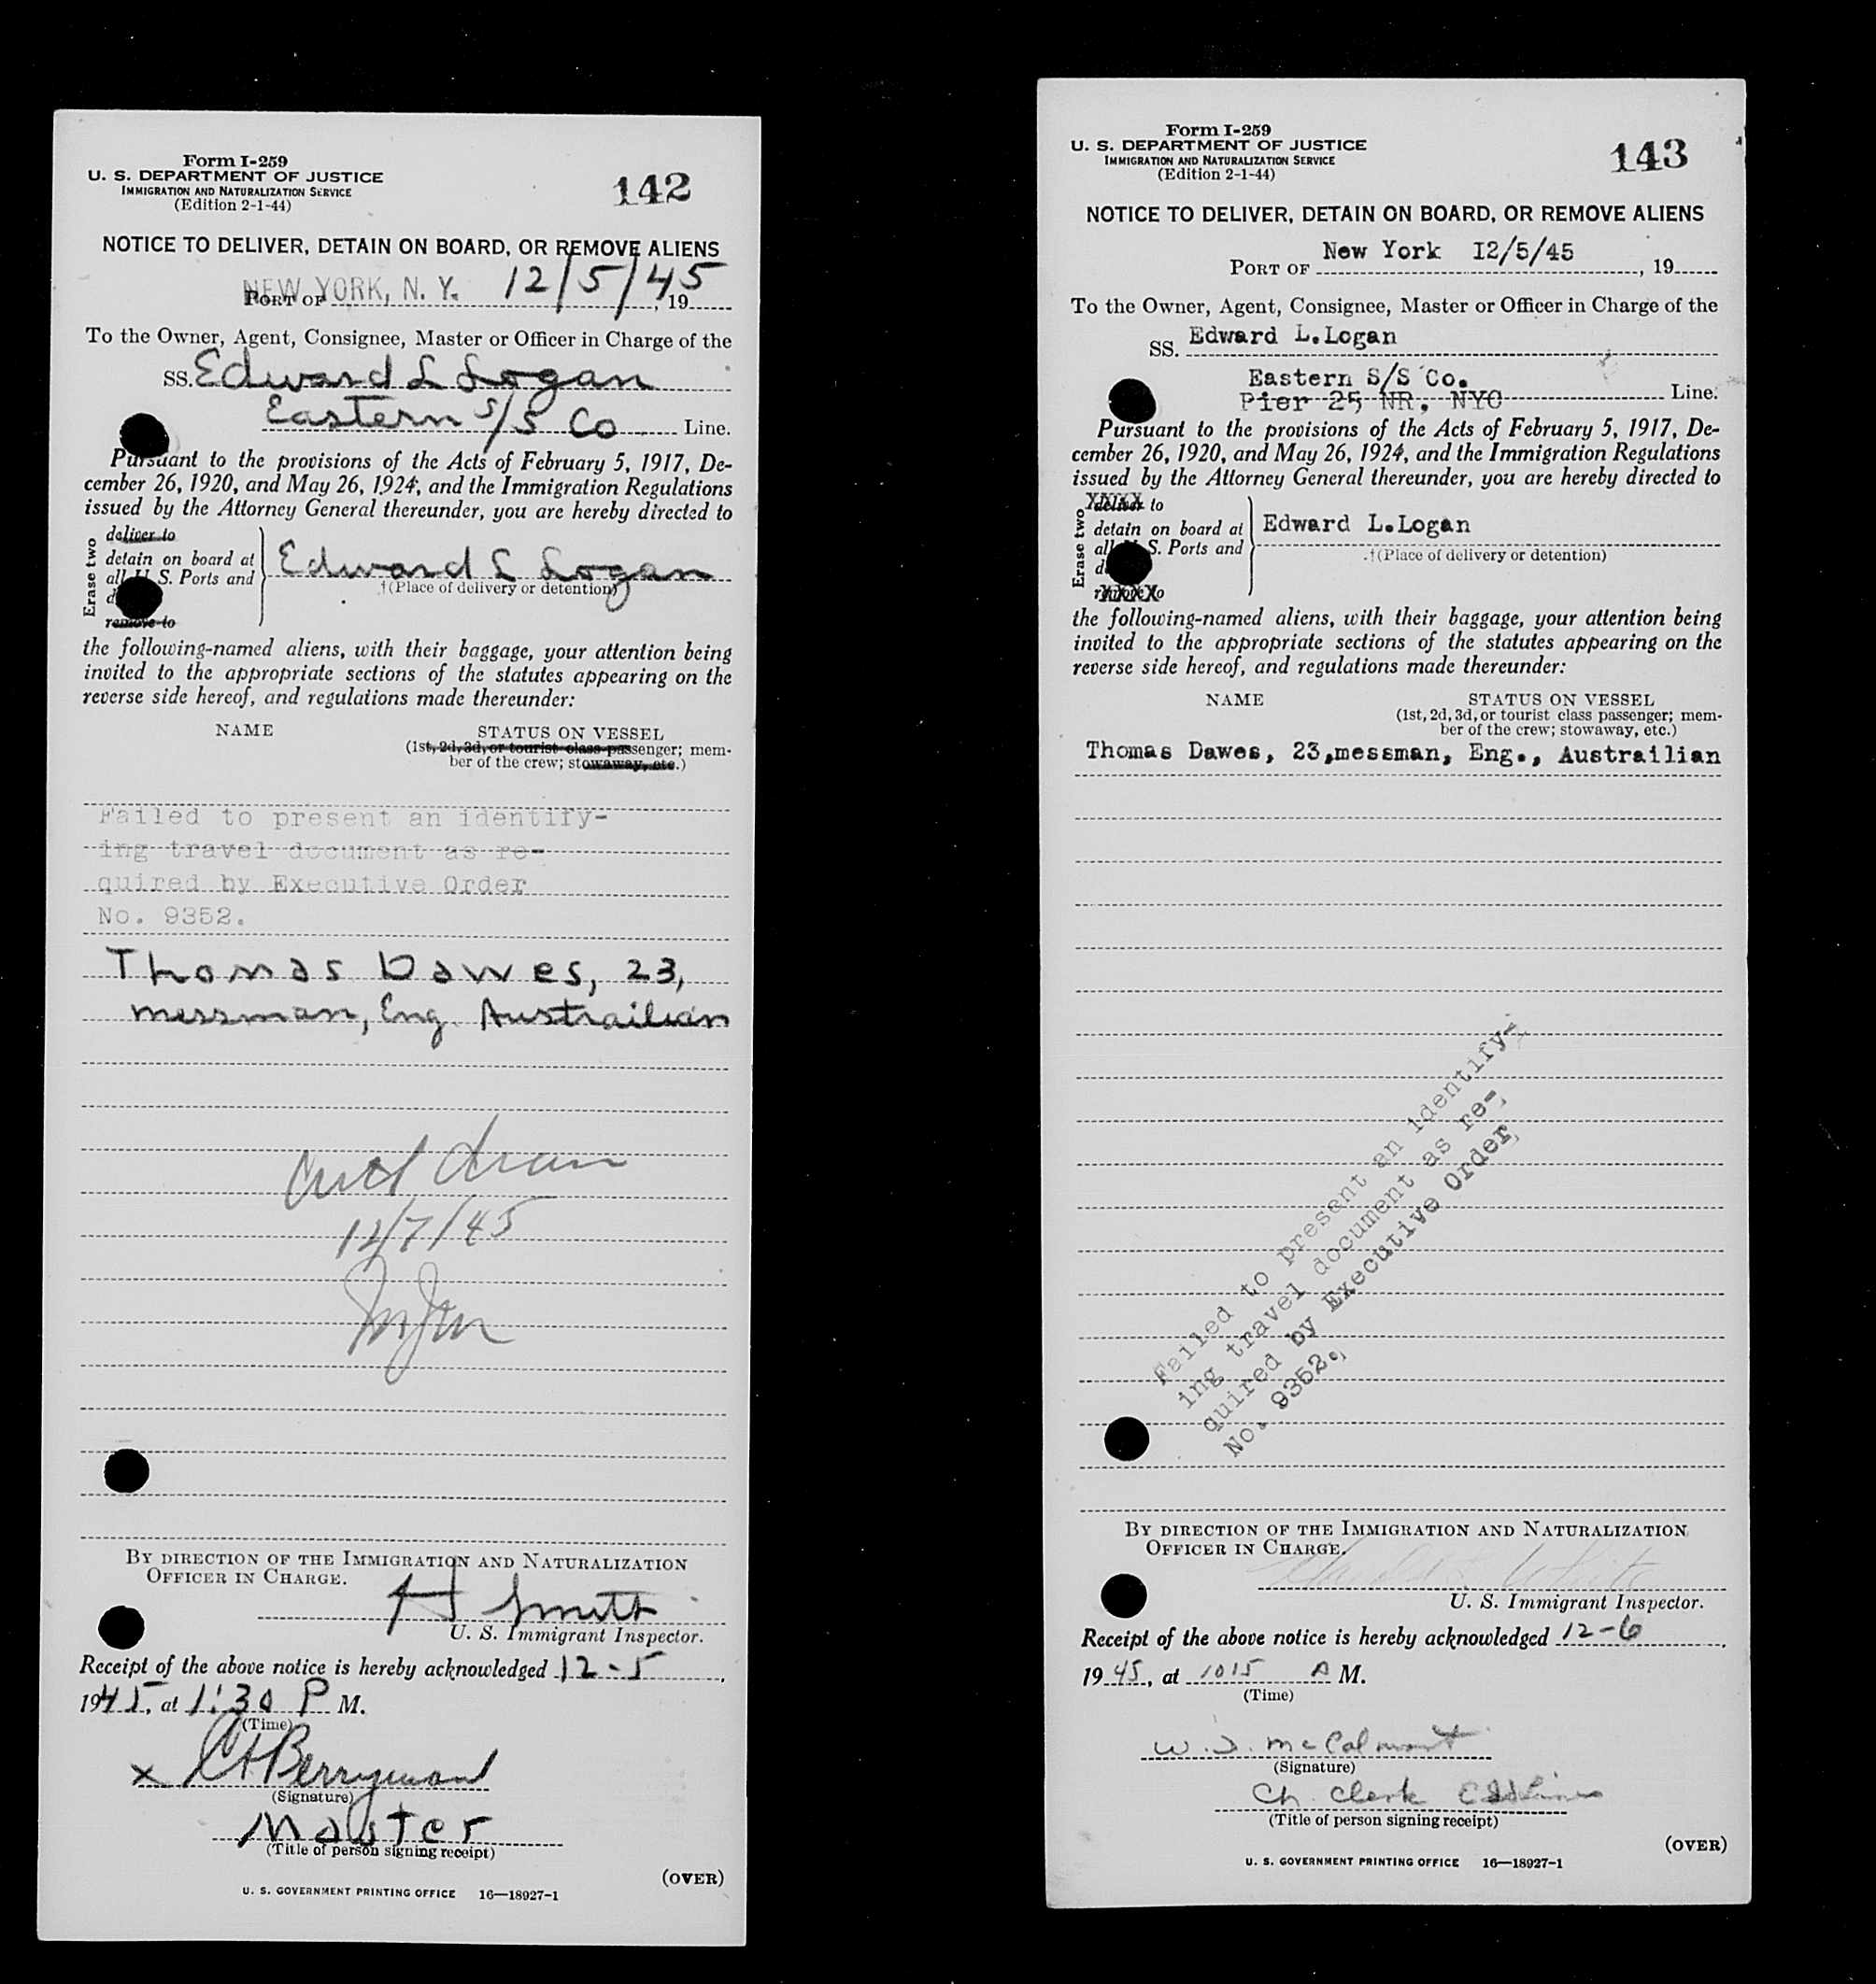 Form I-259
U. S. DEPARTMENT OF JUSTICE
IMMIGRATION AND NATURALIZATION SERVICE
(Edition 2-1-44)
142
NOTICE TO DELIVER, DETAIN ON BOARD, OR REMOVE ALIENS
PORT OF NEW YORK, N. Y. 12/5/45, 19
To the Owner, Agent, Consignee, Master or Officer in Charge of the
SS. Edward L Logan
Eastern S/S Co Line.
Pursuant to the provisions of the Acts of February 5, 1917, De-
cember 26, 1920, and May 26, 1924, and the Immigration Regulations
issued by the Attorney General thereunder, you are hereby directed to
Erase two
deliver to
detain on board at
all U. S. Ports and
remove to
Edward L Logan
†(Place of delivery or detention)
the following-named aliens, with their baggage, your attention being
invited to the appropriate sections of the statutes appearing on the
reverse side hereof, and regulations made thereunder:
NAME
STATUS ON VESSEL
(1st, 2d, 3d, or tourist class passenger; mem-
ber of the crew; stowaway, etc.)
Failed to present an identify-
ing travel document as re-
quired by Executive Order
No. 9352.
Thomas Dawes, 23,
messman, Eng. Austrailian
12/7/45
BY DIRECTION OF THE IMMIGRATION AND NATURALIZATION
OFFICER IN CHARGE.
H Smith
U. S. Immigrant Inspector.
Receipt of the above notice is hereby acknowledged 12-5,
1945, at 1:30 P M.
(Time)
x CH Berryman
(Signature)
Master
(Title of person signing receipt)
(OVER)
U. S. GOVERNMENT PRINTING OFFICE 16—18927-1
Form I-259
U. S. DEPARTMENT OF JUSTICE
IMMIGRATION AND NATURALIZATION SERVICE
(Edition 2-1-44)
143
NOTICE TO DELIVER, DETAIN ON BOARD, OR REMOVE ALIENS
PORT OF New York 12/5/45, 19
To the Owner, Agent, Consignee, Master or Officer in Charge of the
SS. Edward L.Logan
Eastern S/S Co.
Pier 25 NR, NYC Line.
Pursuant to the provisions of the Acts of February 5, 1917, De-
cember 26, 1920, and May 26, 1924, and the Immigration Regulations
issued by the Attorney General thereunder, you are hereby directed to
Erase two
deliver to
detain on board at
all S. Ports and
remove to
Edward L.Logan
†(Place of delivery or detention)
the following-named aliens, with their baggage, your attention being
invited to the appropriate sections of the statutes appearing on the
reverse side hereof, and regulations made thereunder:
NAME
STATUS ON VESSEL
(1st, 2d, 3d, or tourist class passenger; mem-
ber of the crew; stowaway, etc.)
Thomas Dawes, 23,messman, Eng., Austrailian
Failed to present an identify-
ing travel document as re-
quired by Executive Order
No. 9352.
BY DIRECTION OF THE IMMIGRATION AND NATURALIZATION
OFFICER IN CHARGE.
White
U. S. Immigrant Inspector.
Receipt of the above notice is hereby acknowledged 12-6,
1945, at 1015 A M.
(Time)
W. J. McCalmont
(Signature)
Ch. Clerk
(Title of person signing receipt)
(OVER)
U. S. GOVERNMENT PRINTING OFFICE 16—18927-1